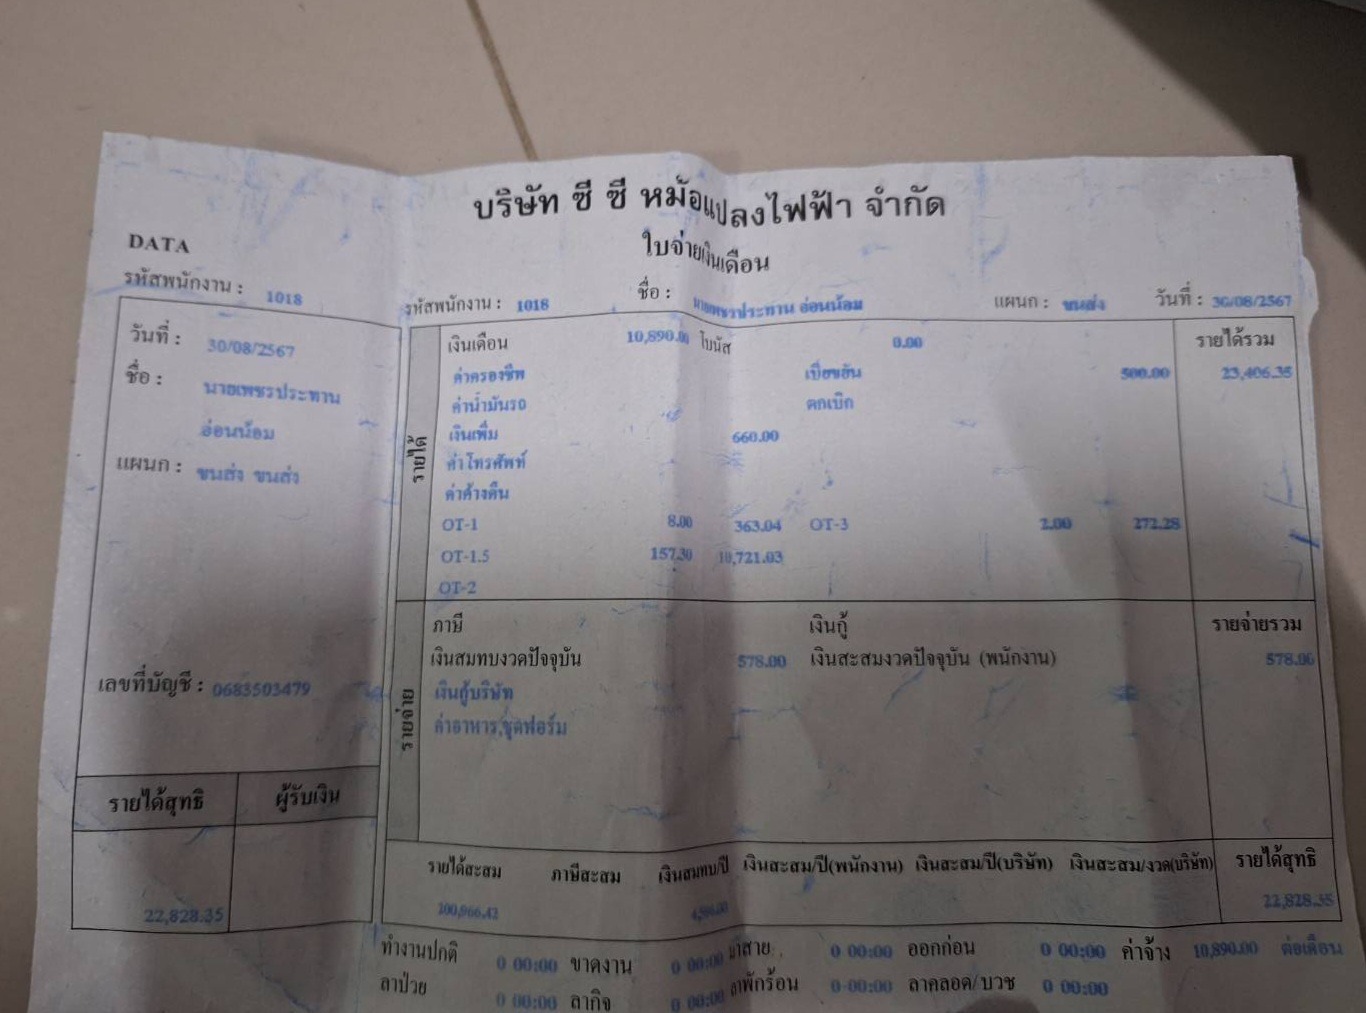 บริษัท ซี ซี หม้อแปลงไฟฟ้า จำกัด
ใบจ่ายเงินเดือน
DATA
รหัสพนักงาน : 1018
วันที่ : 30/08/2567
ชื่อ : นายเพชรประทาน
อ่อนน้อม
แผนก : ขนส่ง ขนส่ง
เลขที่บัญชี : 0683503479
รายได้สุทธิ ผู้รับเงิน
22,828.35
รหัสพนักงาน : 1018 ชื่อ : นายเพชรประทาน อ่อนน้อม แผนก : ขนส่ง วันที่ : 30/08/2567
รายได้
เงินเดือน 10,890.00 โบนัส 0.00 รายได้รวม
ค่าครองชีพ เบี้ยขยัน 500.00 23,406.35
ค่าน้ำมันรถ ตกเบิก
เงินเพิ่ม 660.00
ค่าโทรศัพท์
ค่าค้างคืน
OT-1 8.00 363.04 OT-3 2.00 272.28
OT-1.5 157.30 10,721.03
OT-2
รายจ่าย
ภาษี เงินกู้ รายจ่ายรวม
เงินสมทบงวดปัจจุบัน 578.00 เงินสะสมงวดปัจจุบัน (พนักงาน) 578.00
เงินกู้บริษัท
ค่าอาหาร,ชุดฟอร์ม
รายได้สะสม ภาษีสะสม เงินสมทบ/ปี เงินสะสม/ปี(พนักงาน) เงินสะสม/ปี(บริษัท) เงินสะสม/งวด(บริษัท) รายได้สุทธิ
22,828.35
ทำงานปกติ 0 00:00 ขาดงาน 0 00:00 มาสาย 0 00:00 ออกก่อน 0 00:00 ค่าจ้าง 10,890.00 ต่อเดือน
ลาป่วย 0 00:00 ลากิจ 0 00:00 ลาพักร้อน 0 00:00 ลาคลอด/บวช 0 00:00